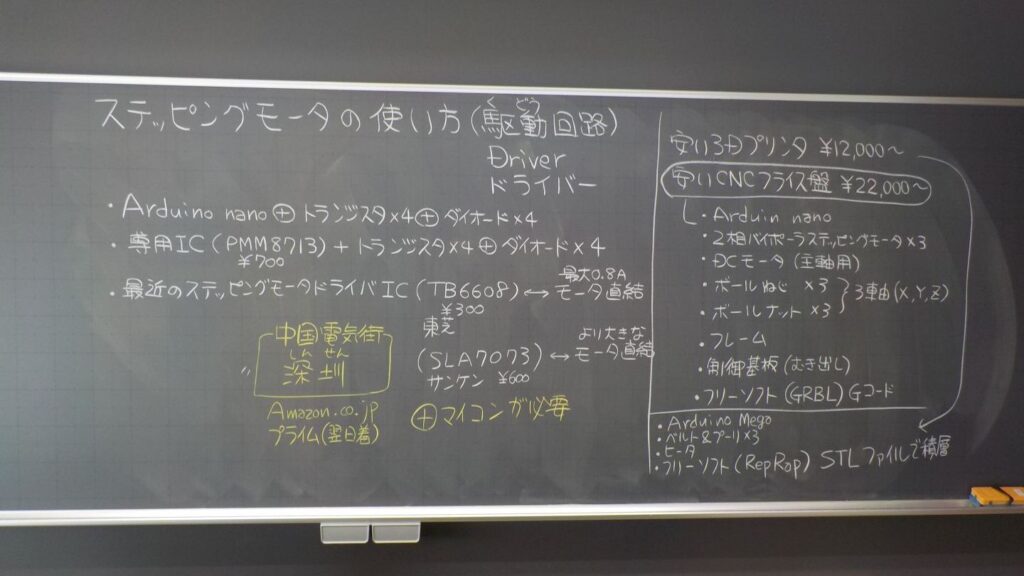 ステッピングモータの使い方(駆動回路)
くどう
Driver
ドライバー
・Arduino nano⊕トランジスタ×4⊕ダイオード×4
・専用IC(PMM8713)+トランジスタ×4⊕ダイオード×4
¥700
・最近のステッピングモータドライバIC(TB6608)↔モータ直結
最大0.8A
¥300
東芝
(SLA7073)↔モータ直結
より大きな
サンケン ¥600
⊕マイコンが必要
中国電気街
しんせん
深圳
〃
Amazon.co.jp
プライム(翌日着)
安い3Dプリンタ ¥12,000〜
安いCNCフライス盤 ¥22,000〜
・Arduin nano
・2相バイポーラステッピングモータ×3
・DCモータ(主軸用)
・ボールねじ ×3
・ボールナット×3
3軸(X,Y,Z)
・フレーム
・制御基板(むき出し)
・フリーソフト(GRBL)Gコード
・Arduino Mega
・ベルト&プーリ×3
・ヒータ
・フリーソフト(RepRap) STLファイルで積層